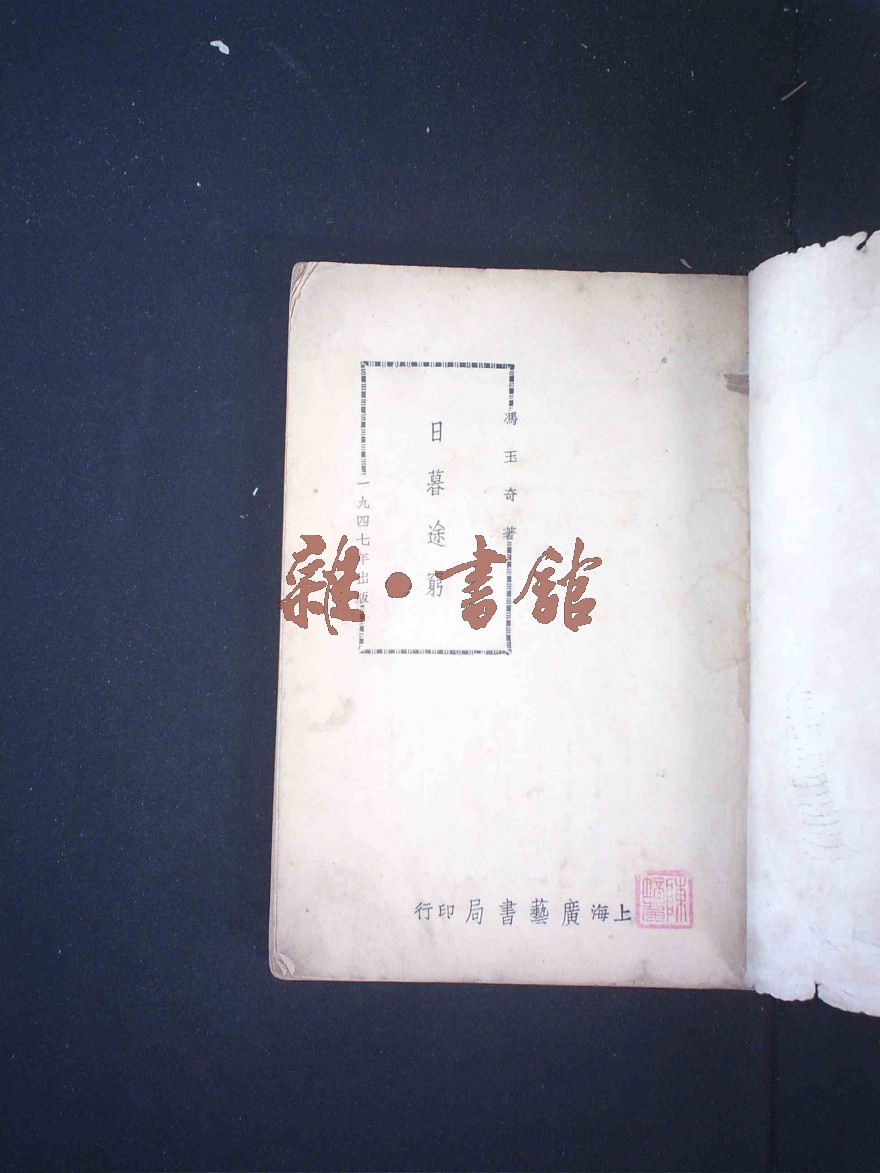 馮玉奇著
日暮途窮
一九四七年出版
上海廣藝書局印行
雜•書館